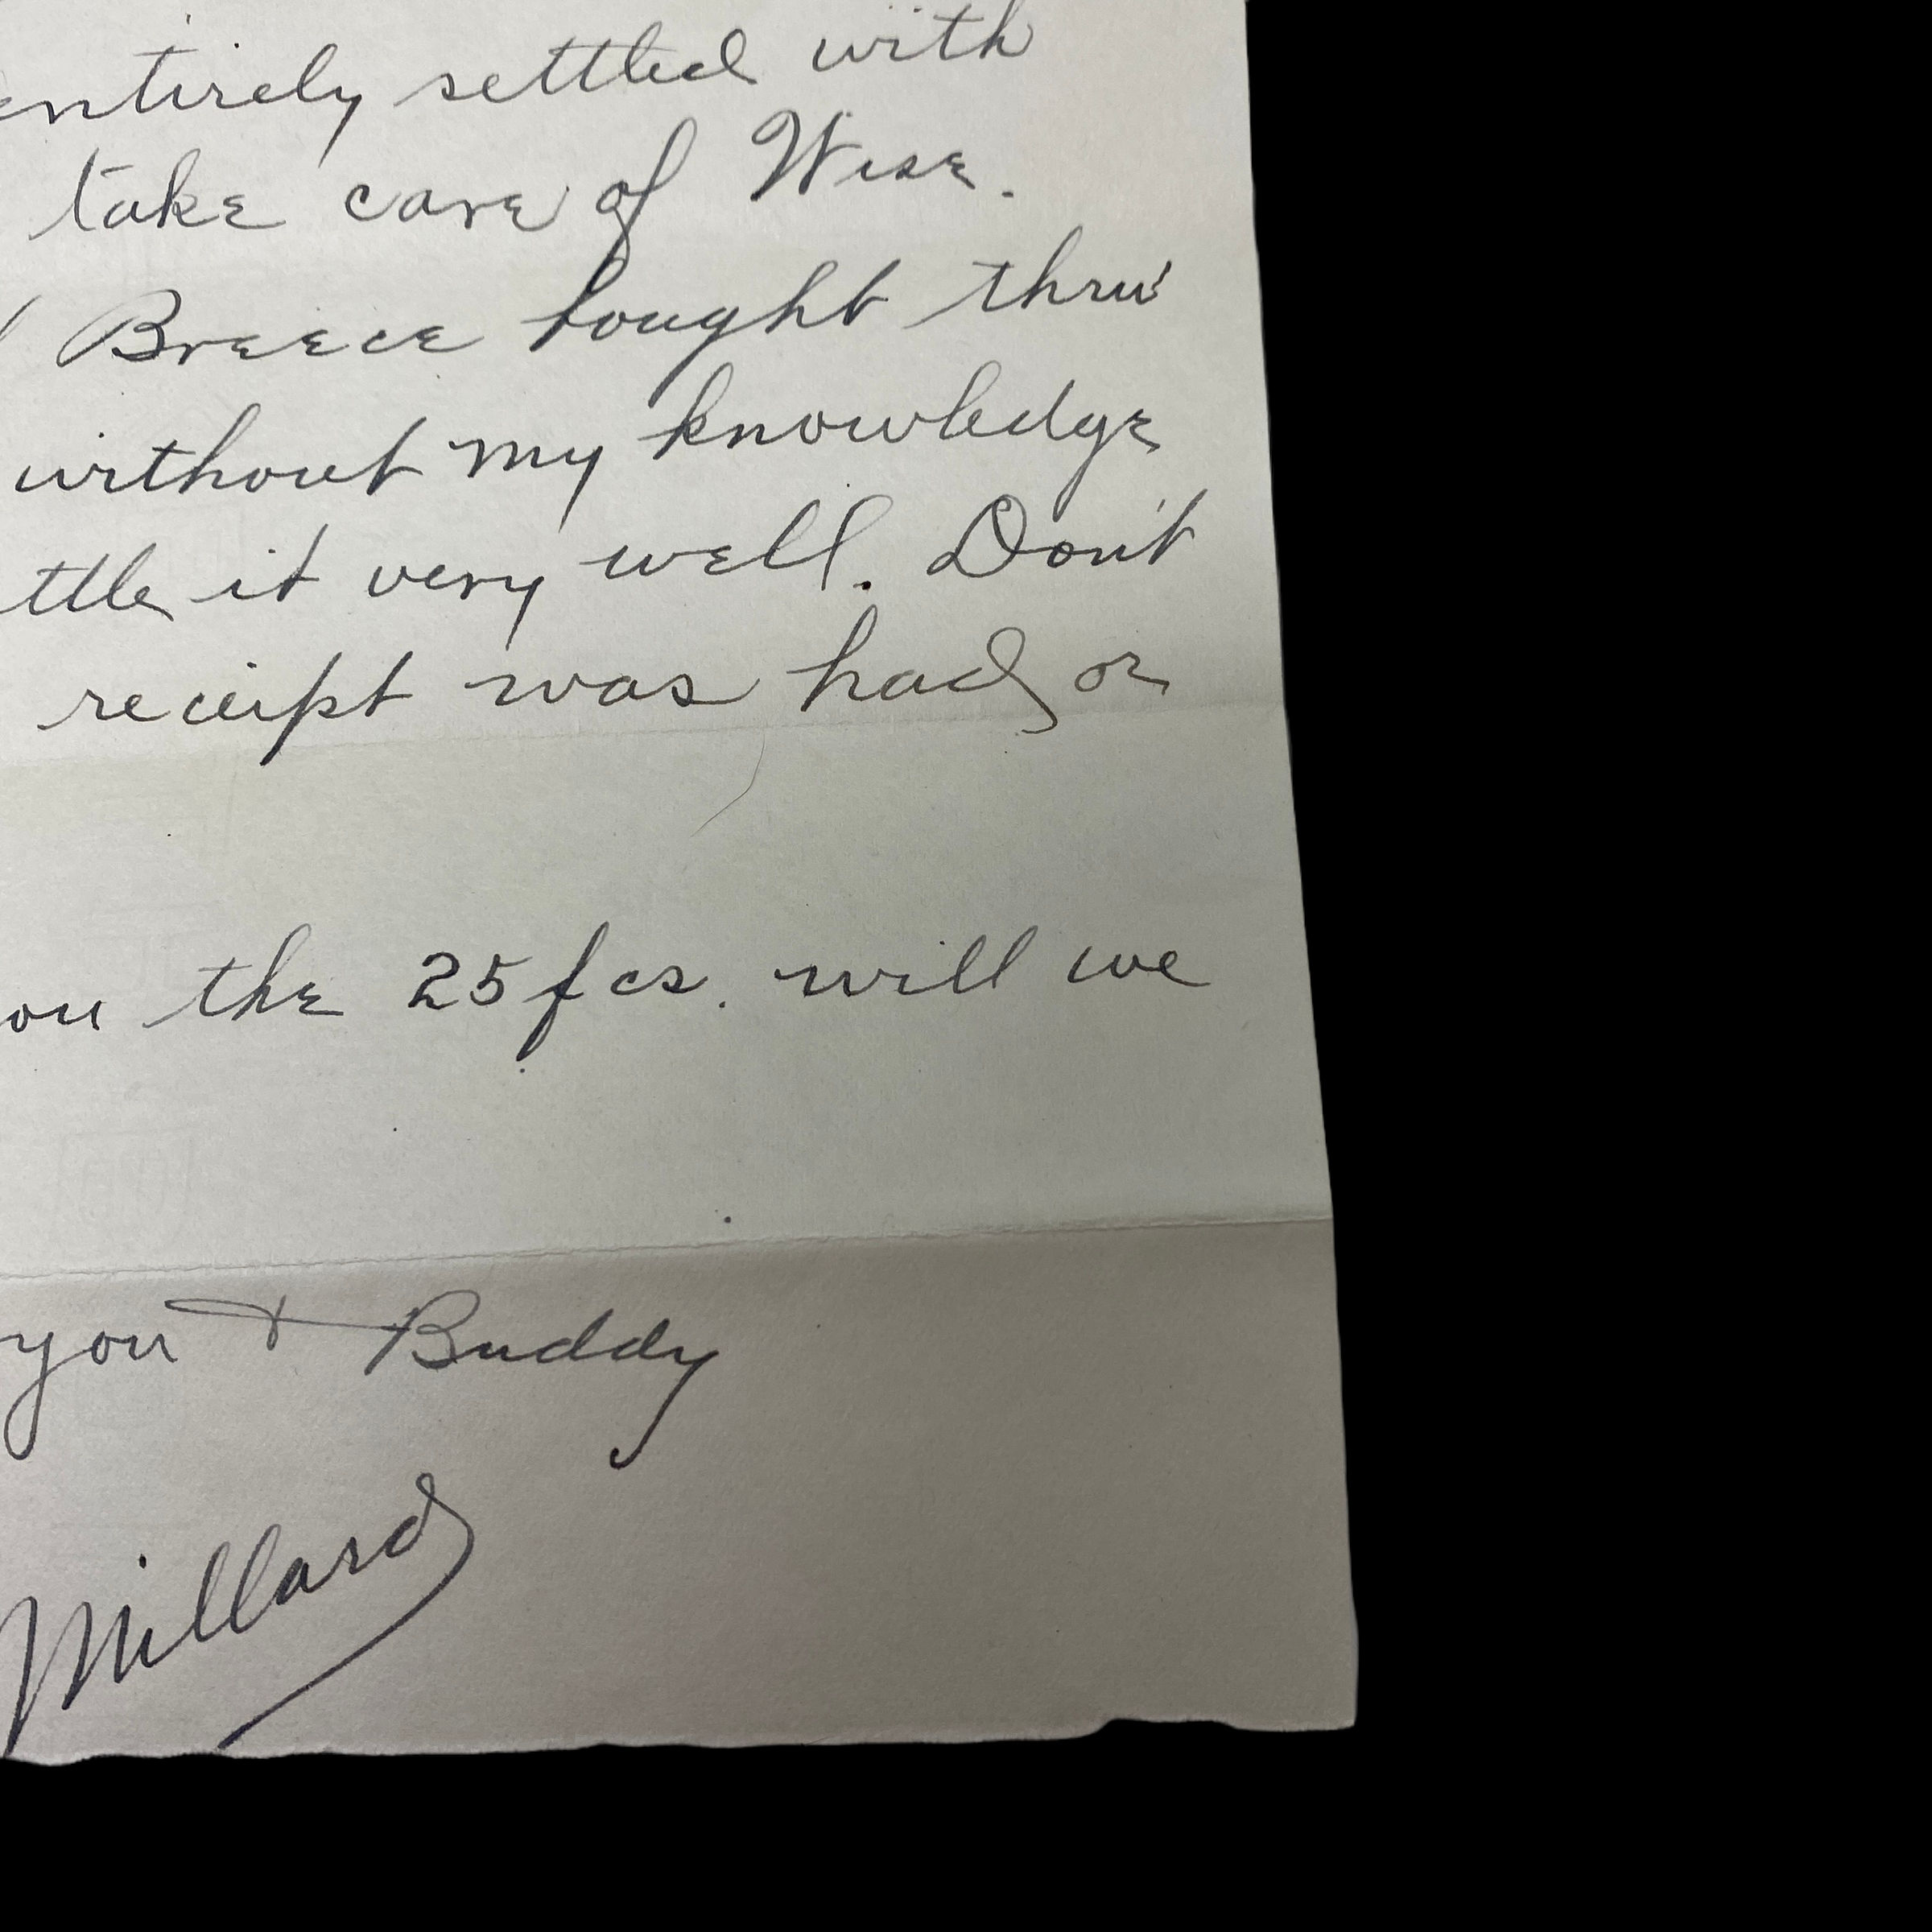 entirely settled with
take care of Wise.
Breece bought thru
without my knowledge
ttle it very well. Don't
receipt was had or
ou the 25 fcs. will we
you & Buddy
Millard